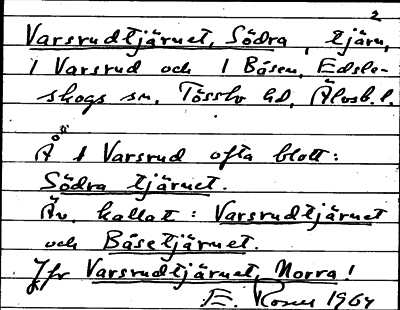 2
Varsrudtjärnet, Södra, tjärn,
i Varsrud och i Båsen, Edsle-
skogs sn, Tössbo hd, Älvsb. l.
På i Varsrud ofta blott:
Södra tjärnet.
Äv. kallat: Varsrudtjärnet
och Båsetjärnet.
Jfr Varsrudtjärnet, Norra!
E. Rosen 1964